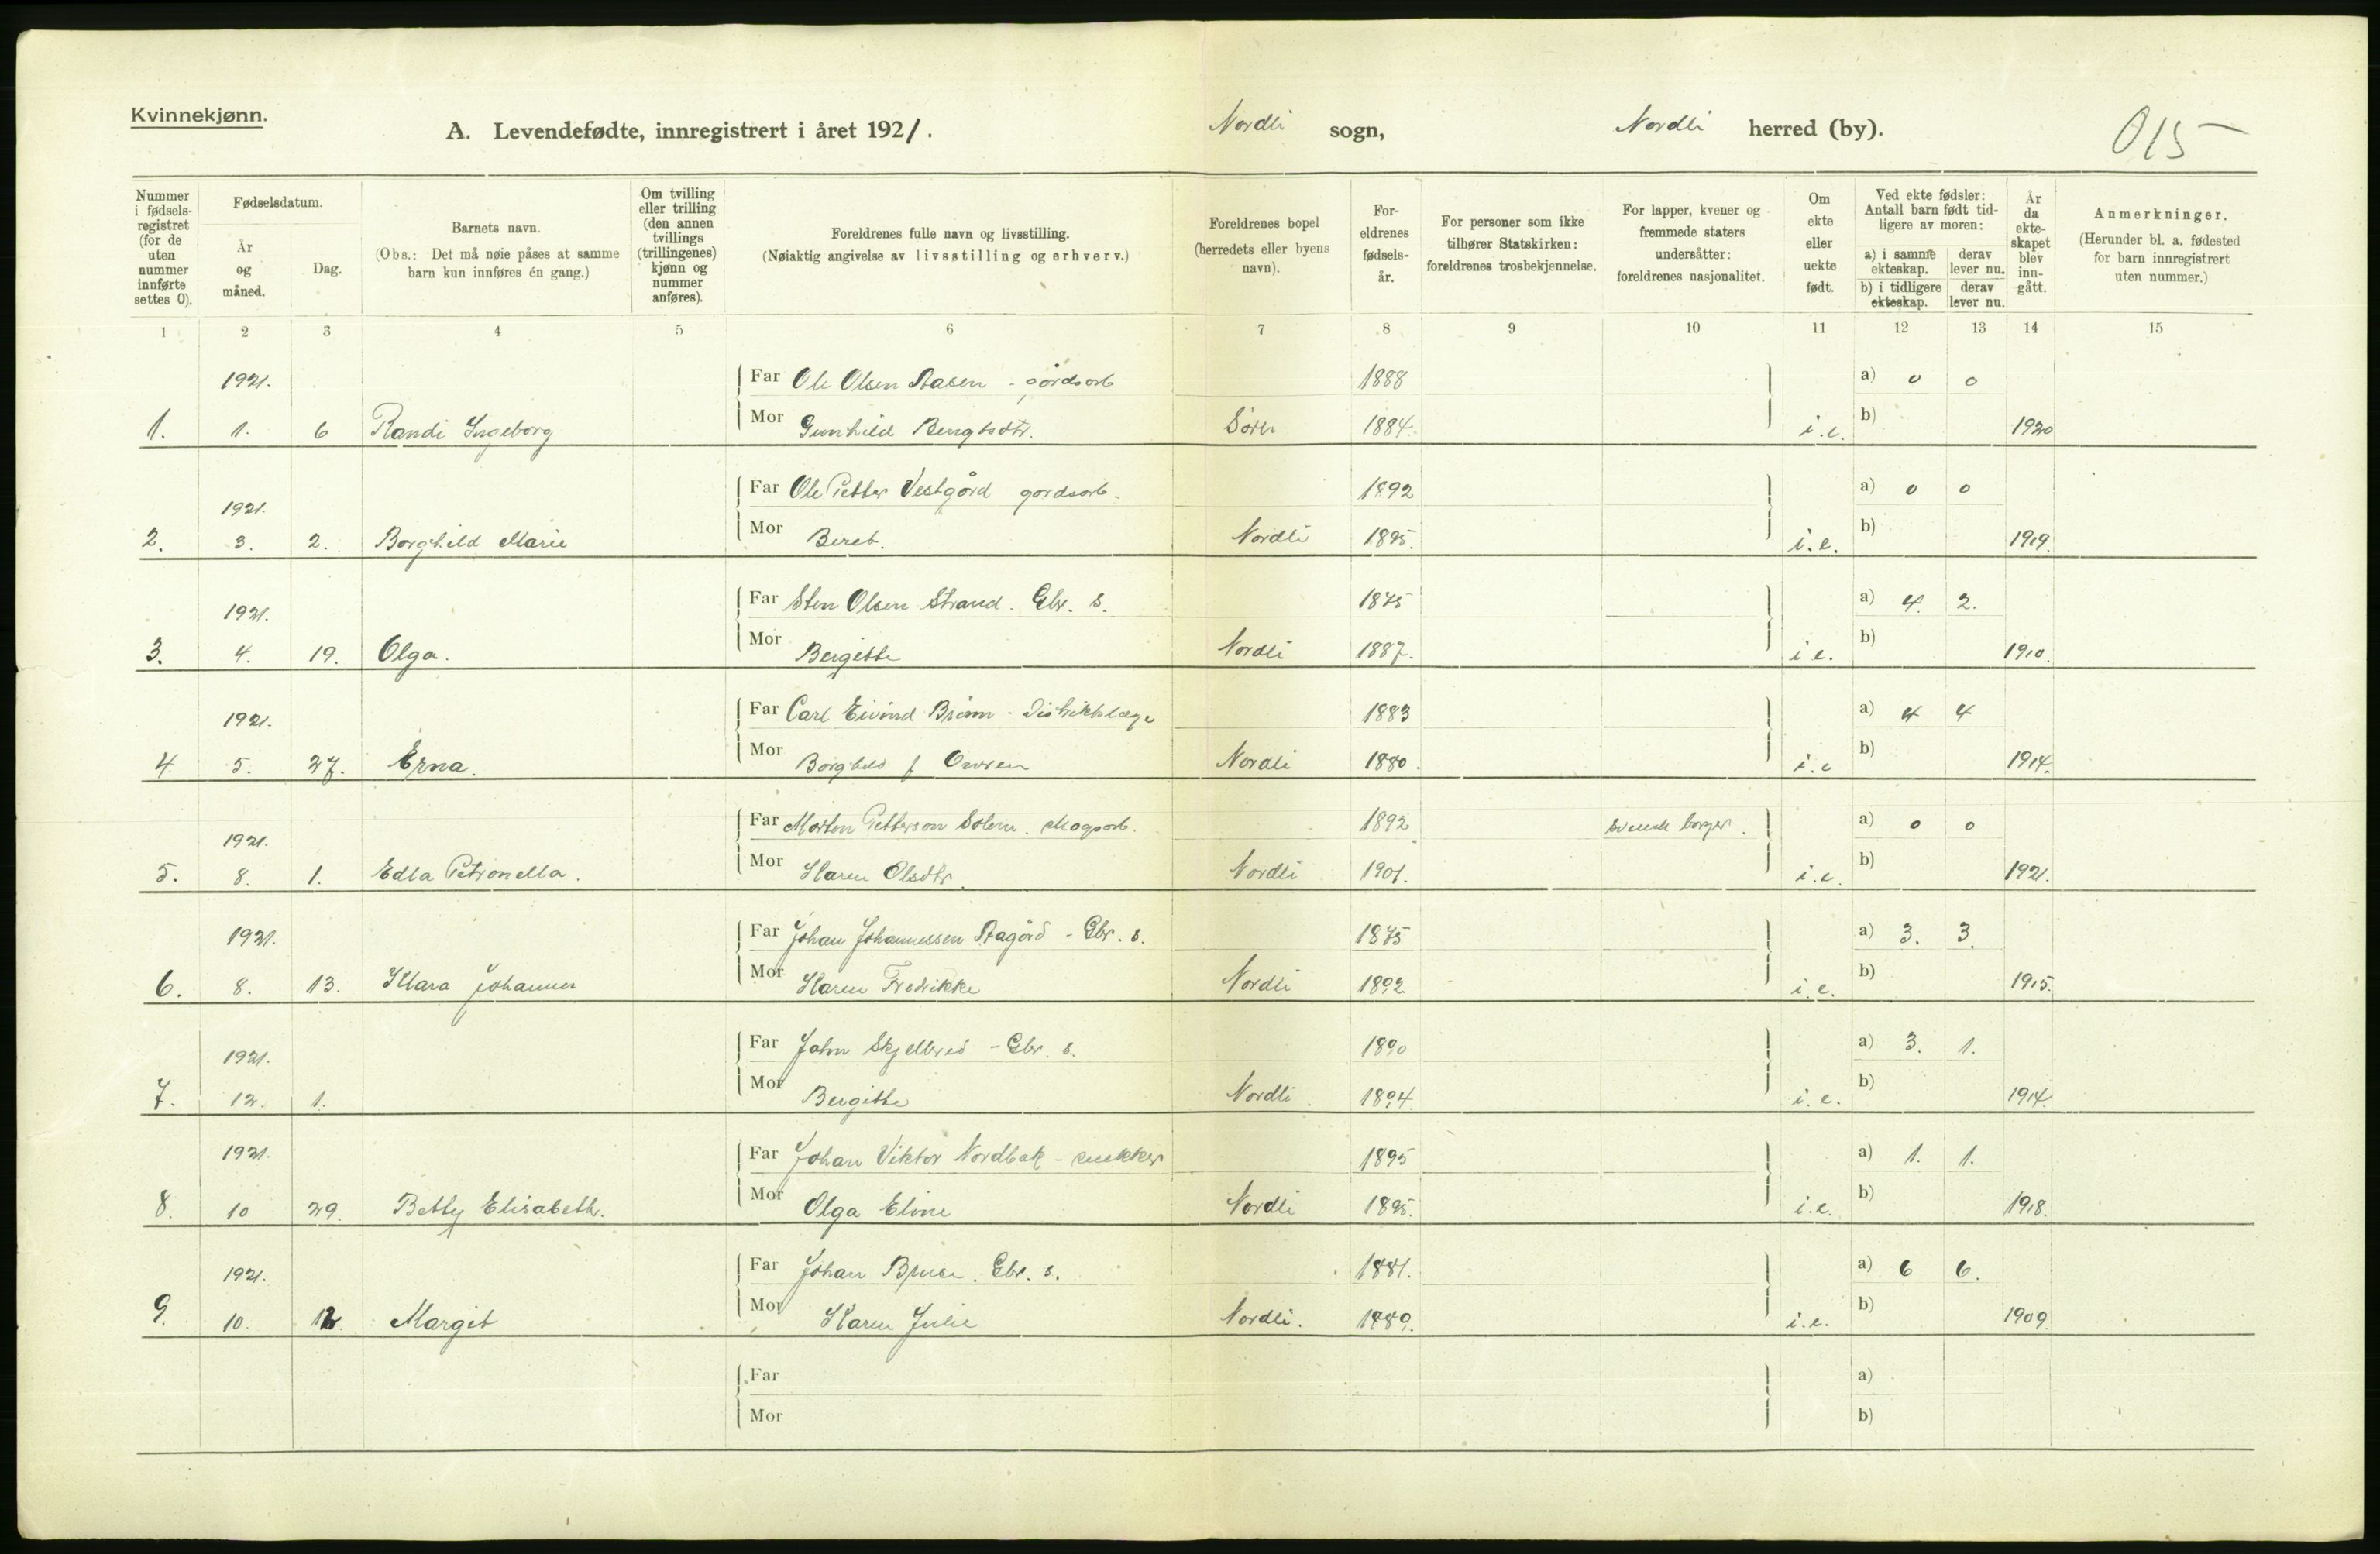 Kvinnekjønn.
A. Levendefødte, innregistrert i året 1921. Nordli sogn, Nordli herred (by). 015
Nummer i fødselsregistret (for de uten nummer innførte settes 0).
Fødselsdatum.
År og måned.
Dag.
Barnets navn.
(Obs.: Det må nøie påses at samme barn kun innføres én gang.)
Om tvilling eller trilling (den annen tvillings (trillingenes) kjønn og nummer anføres).
Foreldrenes fulle navn og livsstilling.
(Nøiaktig angivelse av livsstilling og erhverv.)
Foreldrenes bopel (herredets eller byens navn).
Foreldrenes fødselsår.
For personer som ikke tilhører Statskirken: foreldrenes trosbekjennelse.
For lapper, kvener og fremmede staters undersåtter: foreldrenes nasjonalitet.
Om ekte eller uekte født.
Ved ekte fødsler: Antall barn født tidligere av moren:
a) i samme ekteskap. derav lever nu.
b) i tidligere ekteskap. derav lever nu.
År da ekteskapet blev inngått.
Anmerkninger.
(Herunder bl. a. fødested for barn innregistrert uten nummer.)
1 2 3 4 5 6 7 8 9 10 11 12 13 14 15
1921. Far Ole Olsen Aasen - gårdsarb 1888 a) 0 0
1. 1. 6 Randi Ingeborg Mor Gunhild Bengtsdtr. Sørli 1884. i.e. b) 1920
1921. Far Ole Petter Vestgård gardsarb. 1892 a) 0 0
2. 3. 2. Borghild Marie Mor Beret. Nordli 1895. i.e. b) 1919.
1921. Far Sten Olsen Strand. Gbr. s. 1875 a) 4. 2.
3. 4. 19. Olga. Mor Bergitte Nordli 1887. i.e. b) 1910.
1921. Far Carl Eivind - Distriktslæge 1883 a) 4 4
4 5. 27. Erna. Mor Borghild f Nordli 1880. i.e b) 1914.
1921. Far Morten Petterson Solem. skogsarb. 1892 svensk borger. a) 0 0
5. 8. 1. Edla Petronella. Mor Karen Olsdtr. Nordli 1901. i.e. b) 1921.
1921. Far Johan Johannessen Aagård - Gbr. s. 1875 a) 3. 3.
6. 8. 13. Klara Johanne Mor Karen Fredrikke Nordli 1892 i.e. b) 1915.
1921. Far John Skjelbred - Gbr. s. 1890 a) 3. 1.
7. 12. 1. Mor Bergitte Nordli. 1894. i.e. b) 1914.
1921. Far Johan Viktor Nordbak - snekker 1895 a) 1. 1.
8. 10 29. Betty Elisabeth. Mor Olga Eline Nordli 1895. i.e. b) 1918.
1921. Far Johan Gbr. s. 1881. a) 6 6.
9. 10. 12. Margit Mor Karen Julie Nordli. 1889. i.e. b) 1909.
Far a)
Mor b)